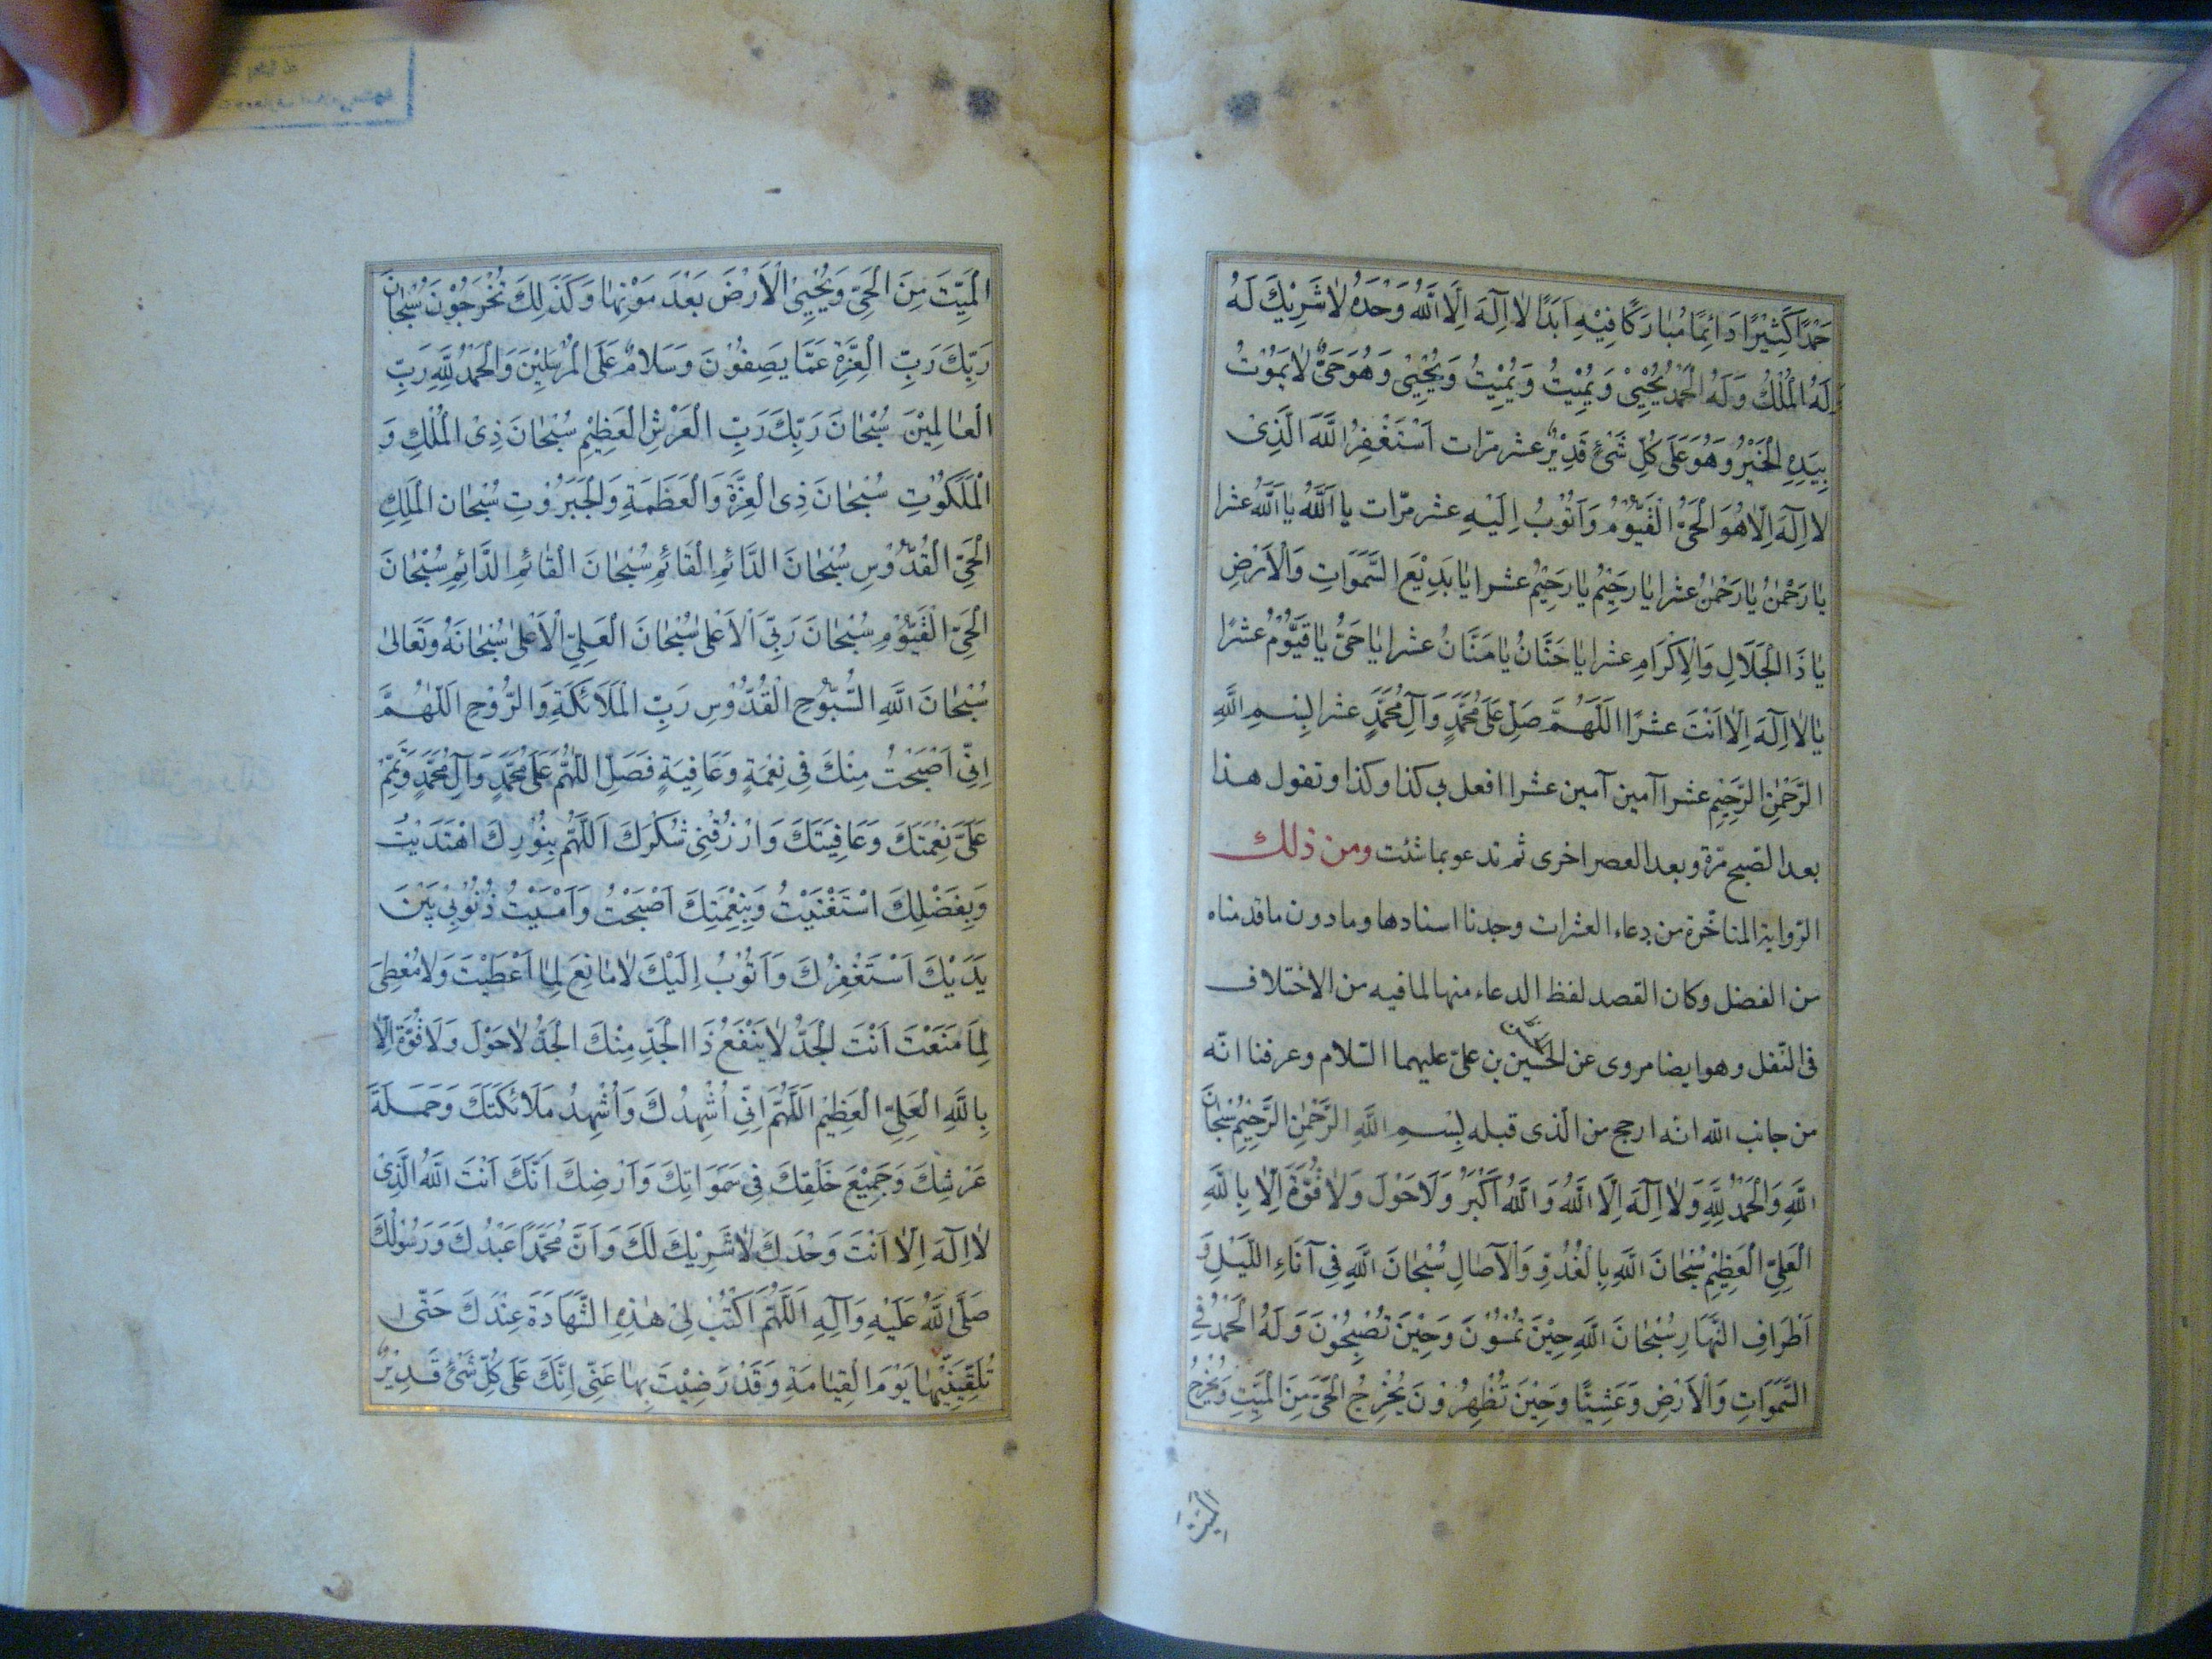 حَمْدًا كَثِيْرًا دَائِمًا مُبٰارَكًا فِيْهِ اَبَدًا لاٰ اِلٓهَ اِلَّا اللّٰهُ وَحْدَهُ لاٰ شَرِيْكَ لَهُ
لَهُ الْمُلْكُ وَلَهُ الْحَمْدُ يُحْيِيْ وَيُمِيْتُ وَيُمِيْتُ وَيُحْيِيْ وَهُوَ حَيٌّ لاٰ يَمُوْتُ
بِيَدِهِ الْخَيْرُ وَهُوَ عَلَى كُلِّ شَئٍ قَدِيْرٌ عشر مرّات اَسْتَغْفِرُ اللّٰهَ الَّذِىْ
لا اِلٓهَ اِلّٰا هُوَ الْحَيُّ الْقَيُّوْمُ وَاَتُوْبُ اِلَيْهِ عشر مرّات يا اَللّٰهُ يٰا اَللّٰهُ عشرا
يٰا رَحْمٰنُ يٰا رَحْمٰنُ عشرا يٰا رَحِيْمُ يٰا رَحِيْمُ عشرا يٰا بَدِيْعَ السَّمَوَاتِ وَالْاَرْضِ
يٰا ذَا الْجَلَالِ وَالْاِكْرَامِ عشرا يٰا حَنَّانُ يٰا مَنَّانُ عشرا يٰا حَيُّ يٰا قَيُّوْمُ عشرًا
يٰا لاٰ اِلٓهَ اِلّٰا اَنْتَ عشرًا اَللّٰهُمَّ صَلِّ عَلَى مُحَمَّدٍ وَآلِ مُحَمَّدٍ عشرا بِسْمِ اللّٰهِ
الرَّحْمٰنِ الرَّحِيْمِ عشرا آمين آمين عشرا افعل بي كذا وكذا وتقول هذا
بعد الصّبح مرّة وبعد العصر اخرى ثم تدعو بما شئت ومن ذلك
الرّواية المتاخّرة من دعاء العشرات وجدنا اسنادها وما دون ما قدمناه
من الفضل وكان القصد لفظ الدعاء منها لما فيه من الاختلاف
فى النّقل وهو ايضا مروى عن الحسين بن علىّ عليهما السّلام وعرفنا انّه
من جانب اللّه انّه ارجح من الّذى قبله بِسْمِ اللّٰهِ الرَّحْمٰنِ الرَّحِيْمِ سُبْحٰانَ
اللّٰهِ وَالْحَمْدُ لِلّٰهِ وَلاٰ اِلٓهَ اِلَّا اللّٰهُ وَاللّٰهُ اَكْبَرُ وَلَا حَوْلَ وَلاٰ قُوَّةَ اِلّٰا بِاللّٰهِ
الْعَلِيِّ الْعَظِيْمِ سُبْحٰانَ اللّٰهِ بِالْغُدُوِّ وَالْآصٰالِ سُبْحٰانَ اللّٰهِ فِى آنَاءِ اللَّيْلِ وَ
اَطْرَافِ النَّهَارِ سُبْحٰانَ اللّٰهِ حِيْنَ تُمْسُوْنَ وَحِيْنَ تُصْبِحُوْنَ وَلَهُ الْحَمْدُ فِى
السَّمَوَاتِ وَالْاَرْضِ وَعَشِيًّا وَحِيْنَ تُظْهِرُوْنَ يُخْرِجُ الْحَيَّ مِنَ الْمَيِّتِ وَيُخْرِجُ
الميّت
الْمَيِّتَ مِنَ الْحَيِّ وَيُحْيِيْ الْاَرْضَ بَعْدَ مَوْتِهٰا وَكَذٰلِكَ تُخْرَجُوْنَ سُبْحٰانَ
رَبِّكَ رَبِّ الْعِزَّةِ عَمَّا يَصِفُوْنَ وَسَلَامٌ عَلَى الْمُرْسَلِيْنَ وَالْحَمْدُ لِلّٰهِ رَبِّ
الْعٰالَمِيْنَ سُبْحٰانَ رَبِّكَ رَبِّ الْعَرْشِ الْعَظِيْمِ سُبْحٰانَ ذِى الْمُلْكِ وَ
الْمَلَكُوْتِ سُبْحٰانَ ذِى الْعِزَّةِ وَالْعَظَمَةِ وَالْجَبَرُوْتِ سُبْحٰانَ الْمَلِكِ
الْحَيِّ الْقُدُّوْسِ سُبْحٰانَ الدَّائِمِ الْقَائِمِ سُبْحٰانَ الْقٰائِمِ الدَّائِمِ سُبْحٰانَ
الْحَيِّ الْقَيُّوْمِ سُبْحٰانَ رَبِّيَ الْاَعْلىٰ سُبْحٰانَ الْعَلِيِّ الْاَعْلىٰ سُبْحٰانَهُ وَتَعَالىٰ
سُبْحٰانَ اللّٰهِ السُّبُّوْحِ الْقُدُّوْسِ رَبِّ الْمَلَائِكَةِ وَالرُّوْحِ اَللّٰهُمَّ
اِنِّي اَصْبَحْتُ مِنْكَ فِى نِعْمَةٍ وَعَافِيَةٍ فَصَلِّ اللّٰهُمَّ عَلَى مُحَمَّدٍ وَآلِ مُحَمَّدٍ وَتَمِّمْ
عَلَيَّ نِعْمَتَكَ وَعَافِيَتَكَ وَارْزُقْنِى شُكْرَكَ اَللّٰهُمَّ بِنُوْرِكَ اهْتَدَيْتُ
وَبِفَضْلِكَ اسْتَغْنَيْتُ وَبِنِعْمَتِكَ اَصْبَحْتُ وَاَمْسَيْتُ ذُنُوْبِيْ بَيْنَ
يَدَيْكَ اَسْتَغْفِرُكَ وَاَتُوْبُ اِلَيْكَ لاٰ مٰانِعَ لِمٰا اَعْطَيْتَ وَلاٰ مُعْطِيَ
لِمَا مَنَعْتَ اَنْتَ الْجَدُّ لاٰ يَنْفَعُ ذَا الْجَدِّ مِنْكَ الْجَدُّ لاٰ حَوْلَ وَلَا قُوَّةَ اِلّٰا
بِاللّٰهِ الْعَلِيِّ الْعَظِيْمِ اَللّٰهُمَّ اِنِّي اُشْهِدُكَ وَاُشْهِدُ مَلَائِكَتَكَ وَحَمَلَةَ
عَرْشِكَ وَجَمِيْعَ خَلْقِكَ فِى سَمَوَاتِكَ وَاَرْضِكَ اَنَّكَ اَنْتَ اللّٰهُ الَّذِىْ
لاٰ اِلٓهَ اِلّٰا اَنْتَ وَحْدَكَ لاٰ شَرِيْكَ لَكَ وَاَنَّ مُحَمَّدًا عَبْدُكَ وَرَسُوْلُكَ
صَلَّى اللّٰهُ عَلَيْهِ وَآلِهِ اَللّٰهُمَّ اكْتُبْ لِىْ هٰذِهِ الشَّهَادَةَ عِنْدَكَ حَتّٰى
تُلَقِّيَنِّيْهٰا يَوْمَ الْقِيٰامَةِ وَقَدْ رَضِيْتَ بِهٰا عَنِّى اِنَّكَ عَلَى كُلِّ شَئٍ قَدِيْرٌ